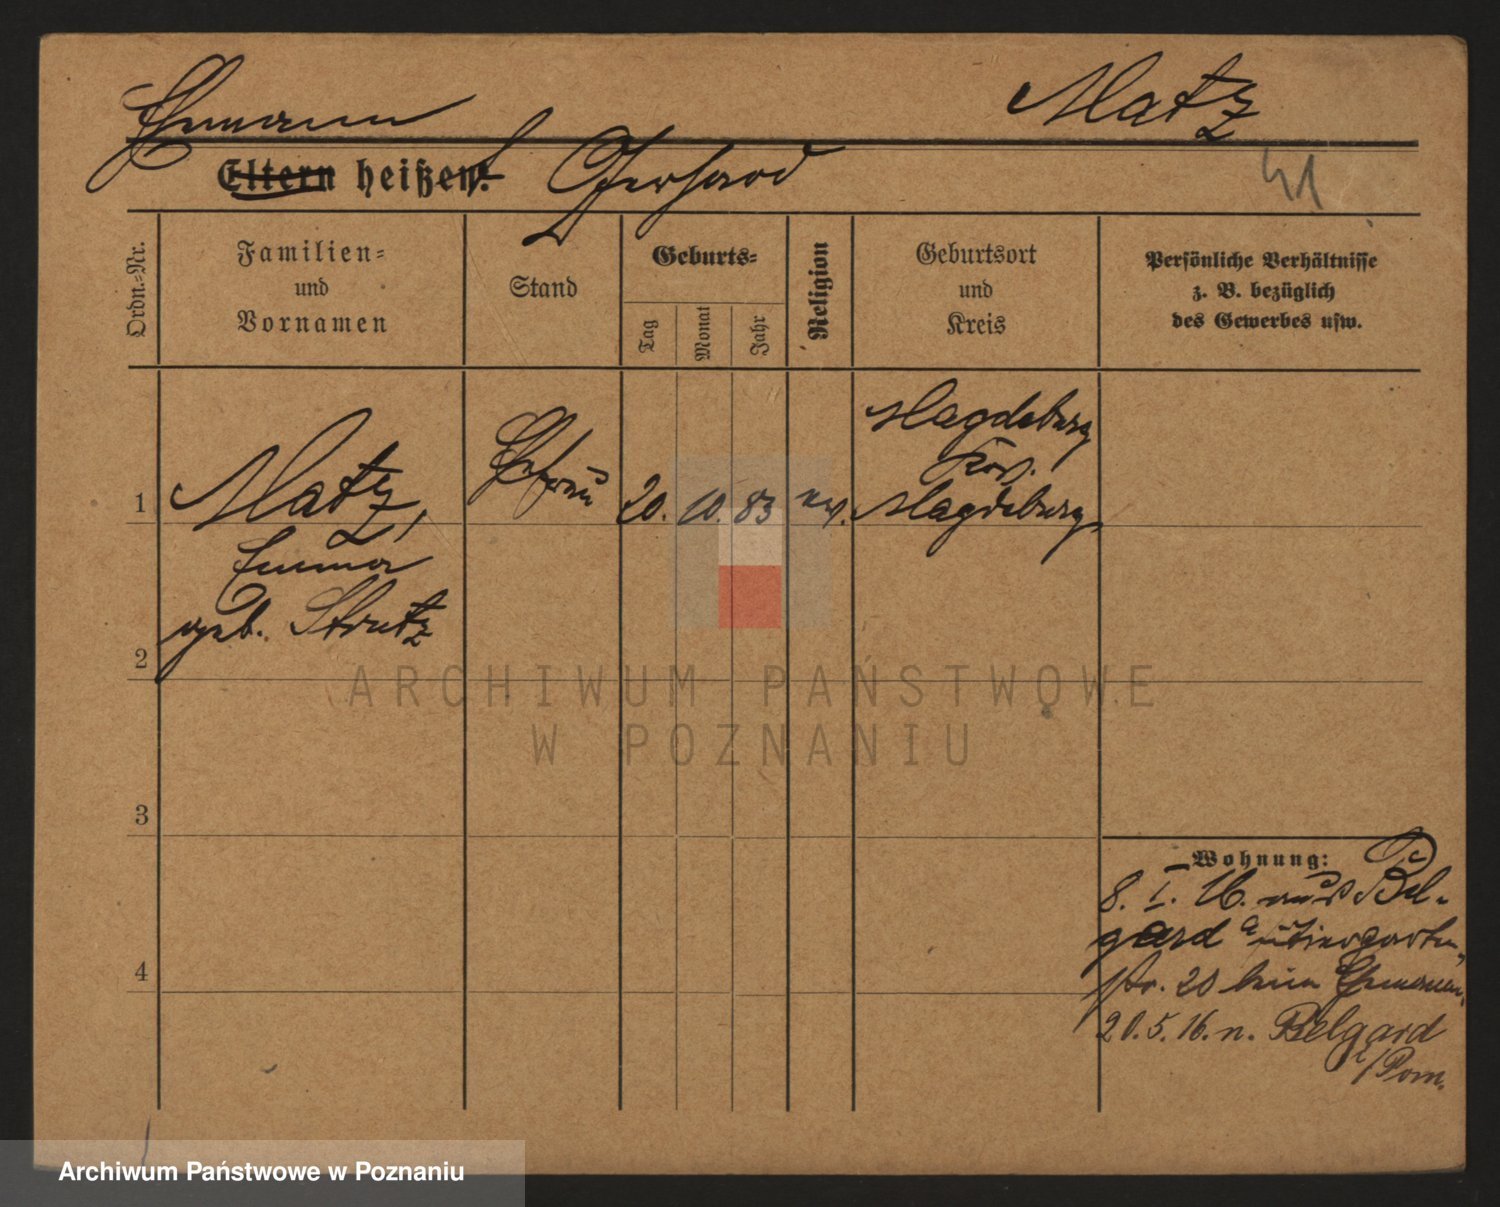 Ehemann Matz
Eltern heißen: Gerhard
41
Ordn.-Nr.
Familien-
und
Vornamen
Stand
Geburts-
Tag
Monat
Jahr
Religion
Geburtsort
und
Kreis
Persönliche Verhältnisse
z. B. bezüglich
des Gewerbes usw.
1
Matz,
Emma
geb. Strutz
Ehefrau
20. 10. 83
ev.
Magdeburg
Krs.
Magdeburg
2
3
4
Wohnung:
8. I. 16. aus Bel-
gard
str. 20 beim Ehemann.
20. 5. 16. n. Belgard
/Pom.
ARCHIWUM PAŃSTWOWE
W POZNANIU
Archiwum Państwowe w Poznaniu